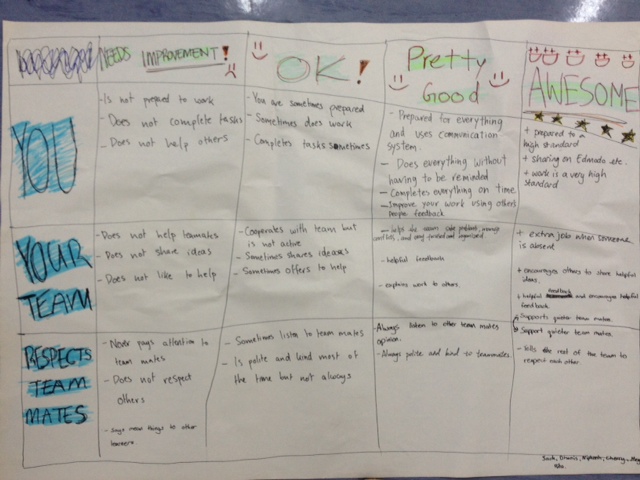 NEEDS IMPROVEMENT!
OK!
Pretty
Good
AWESOME
YOU
- Is not prepared to work
- Does not complete tasks
- Does not help others
- You are sometimes prepared
- Sometimes does work
- Completes tasks sometimes
- Prepared for everything
and uses communication
system.
- Does everything without
having to be reminded
- Completes everything on time
- Improve your work using others
people feedback
+ prepared to a
high standard
+ sharing on Edmodo etc.
+ work is a very high
standard
YOUR
TEAM
- Does not help teamates
- Does not share ideas
- Does not like to help
- Cooperates with team but
is not active
- Sometimes shares ideas
- Sometimes offers to help
- helps the
and organised
- helpful feedback
- explains work to others.
+ extra job when someone
is absent
+ encourages others to share helpful
ideas.
+ helpful feedback and encourages helpful
feedback
Supports quieter team mates
RESPECTS
TEAM
MATES
- Never pays attention to
team mates
- Does not respect
others
- Says mean things to other
learners.
- Sometimes listen to team mates
- Is polite and kind most of
the time but not always
Always listen to other team mates
opinion.
- Always polite and kind to teammates.
Support quieter team mates
- tells the rest of the team to
respect each other.